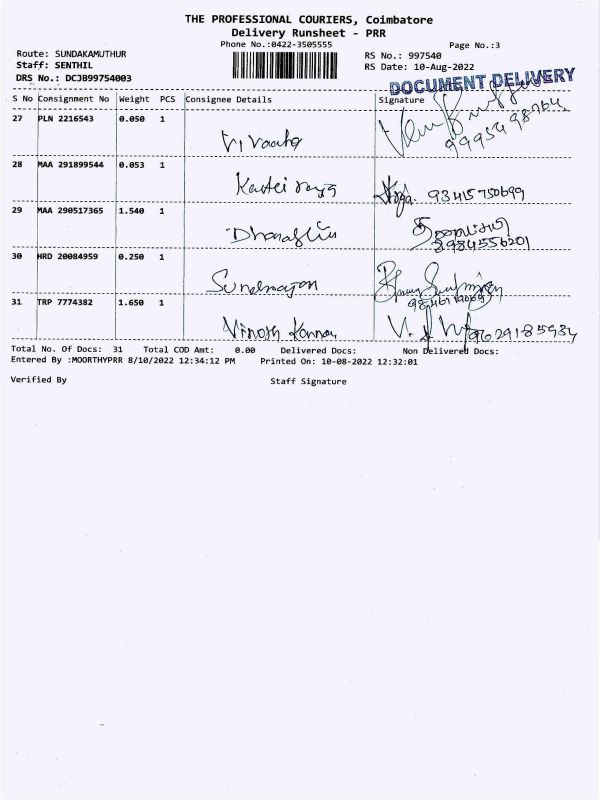 THE PROFESSIONAL COURIERS, Coimbatore
Delivery Runsheet - PRR
Phone No.:0422-3505555
Page No.:3
Route: SUNDAKAMUTHUR
RS No.: 997540
Staff: SENTHIL
RS Date: 10-Aug-2022
DRS No.: DCJB99754003
DOCUMENT DELIVERY
S No Consignment No Weight PCS Consignee Details Signature
27 PLN 2216543 0.050 1
Vivaaha
28 MAA 291899544 0.053 1
93415750699
29 MAA 290517365 1.540 1
8984556201
30 HRD 20084959 0.250 1
31 TRP 7774382 1.650 1
Vinoth Kannan 9629185984
Total No. Of Docs: 31 Total COD Amt: 0.00 Delivered Docs: Non Delivered Docs:
Entered By :MOORTHYPRR 8/10/2022 12:34:12 PM Printed On: 10-08-2022 12:32:01
Verified By Staff Signature